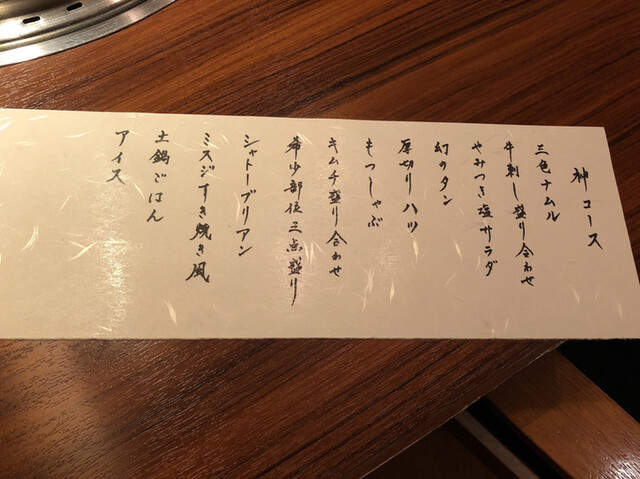 神コース
三色ナムル
牛刺し盛り合わせ
やみつき塩サラダ
幻のタン
厚切りハツ
もつしゃぶ
キムチ盛り合わせ
希少部位三点盛り
シャトーブリアン
ミスジすき焼き風
土鍋ごはん
アイス